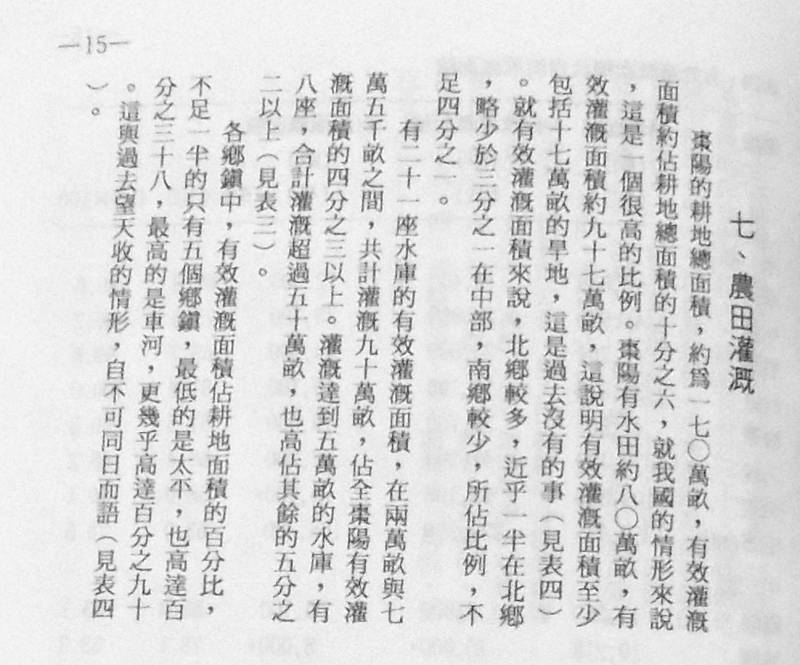 —15—
七、農田灌溉
棗陽的耕地總面積，約爲一七〇萬畝，有效灌溉
面積約佔耕地總面積的十分之六，就我國的情形來說
，這是一個很高的比例。棗陽有水田約八〇萬畝，有
效灌溉面積約九十七萬畝，這說明有效灌溉面積至少
包括十七萬畝的旱地，這是過去沒有的事（見表四）
。就有效灌溉面積來說，北鄉較多，近乎一半在北鄉
，略少於三分之一在中部，南鄉較少，所佔比例，不
足四分之一。
有二十一座水庫的有效灌溉面積，在兩萬畝與七
萬五千畝之間，共計灌溉九十萬畝，佔全棗陽有效灌
溉面積的四分之三以上。灌溉達到五萬畝的水庫，有
八座，合計灌溉超過五十萬畝，也高佔其餘的五分之
二以上（見表三）。
各鄉鎮中，有效灌溉面積佔耕地面積的百分比，
不足一半的只有五個鄉鎮，最低的是太平，也高達百
分之三十八，最高的是車河，更幾乎高達百分之九十
。這與過去望天收的情形，自不可同日而語（見表四
）。